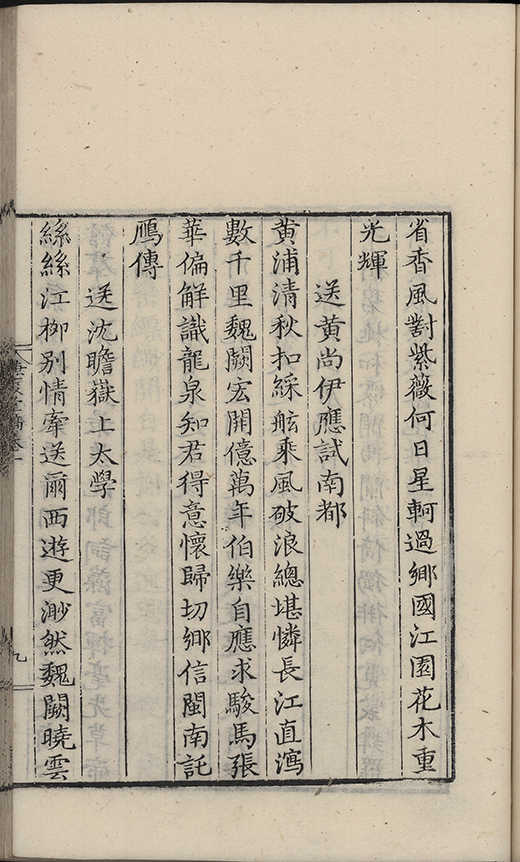 省香風對紫薇何日星軺過鄉國江園花木重
光輝
送黄尚伊應試南都
黄浦清秋扣綵舷乘風破浪總堪憐長江直瀉
數千里魏闕宏開億萬年伯樂自應求駿馬張
華偏解識龍泉知君得意懷歸切鄉信閩南託
鴈傳
送沈瞻嶽上太學
絲絲江柳别情牽送爾西遊更渺然魏闕曉雲
九